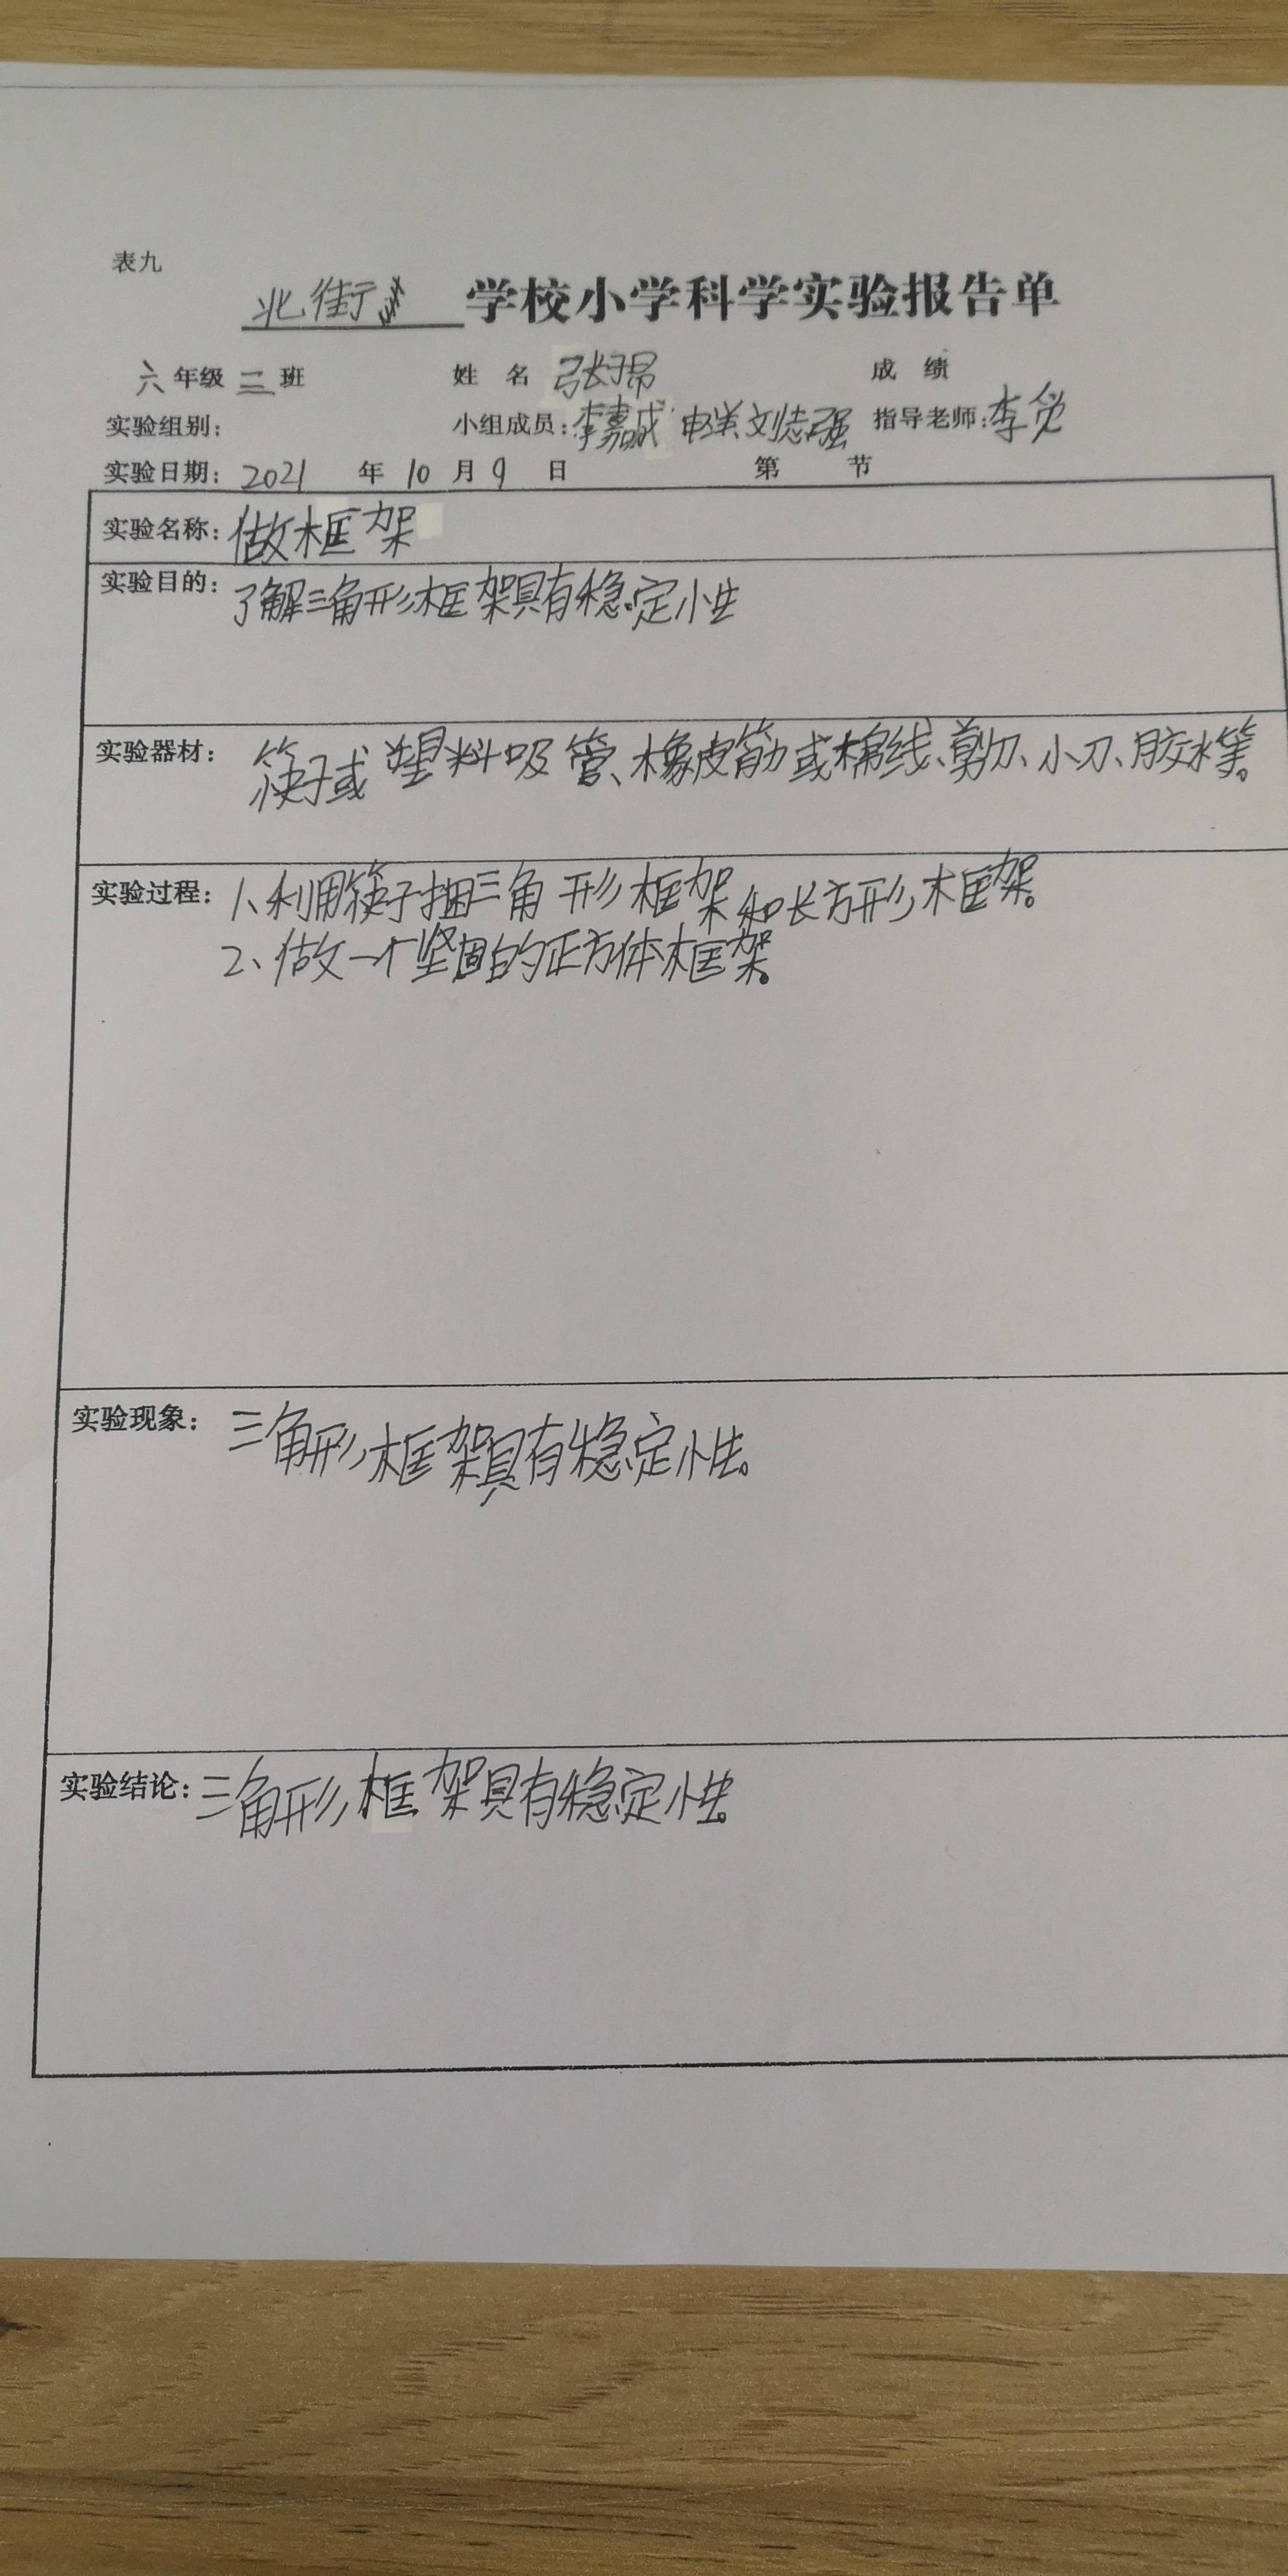 表九
北街 学校小学科学实验报告单
六年级二班 姓名 张子昂 成绩
实验组别： 小组成员：李嘉诚 刘志强 指导老师：李
实验日期：2021年10月9日 第 节
实验名称：做框架
实验目的：了解三角形框架具有稳定性
实验器材：筷子或塑料吸管、橡皮筋或棉线、剪刀、小刀、胶水等。
实验过程：1、利用筷子捆三角形框架和长方形框架。
2、做一个坚固的正方体框架。
实验现象：三角形框架具有稳定性。
实验结论：三角形框架具有稳定性。